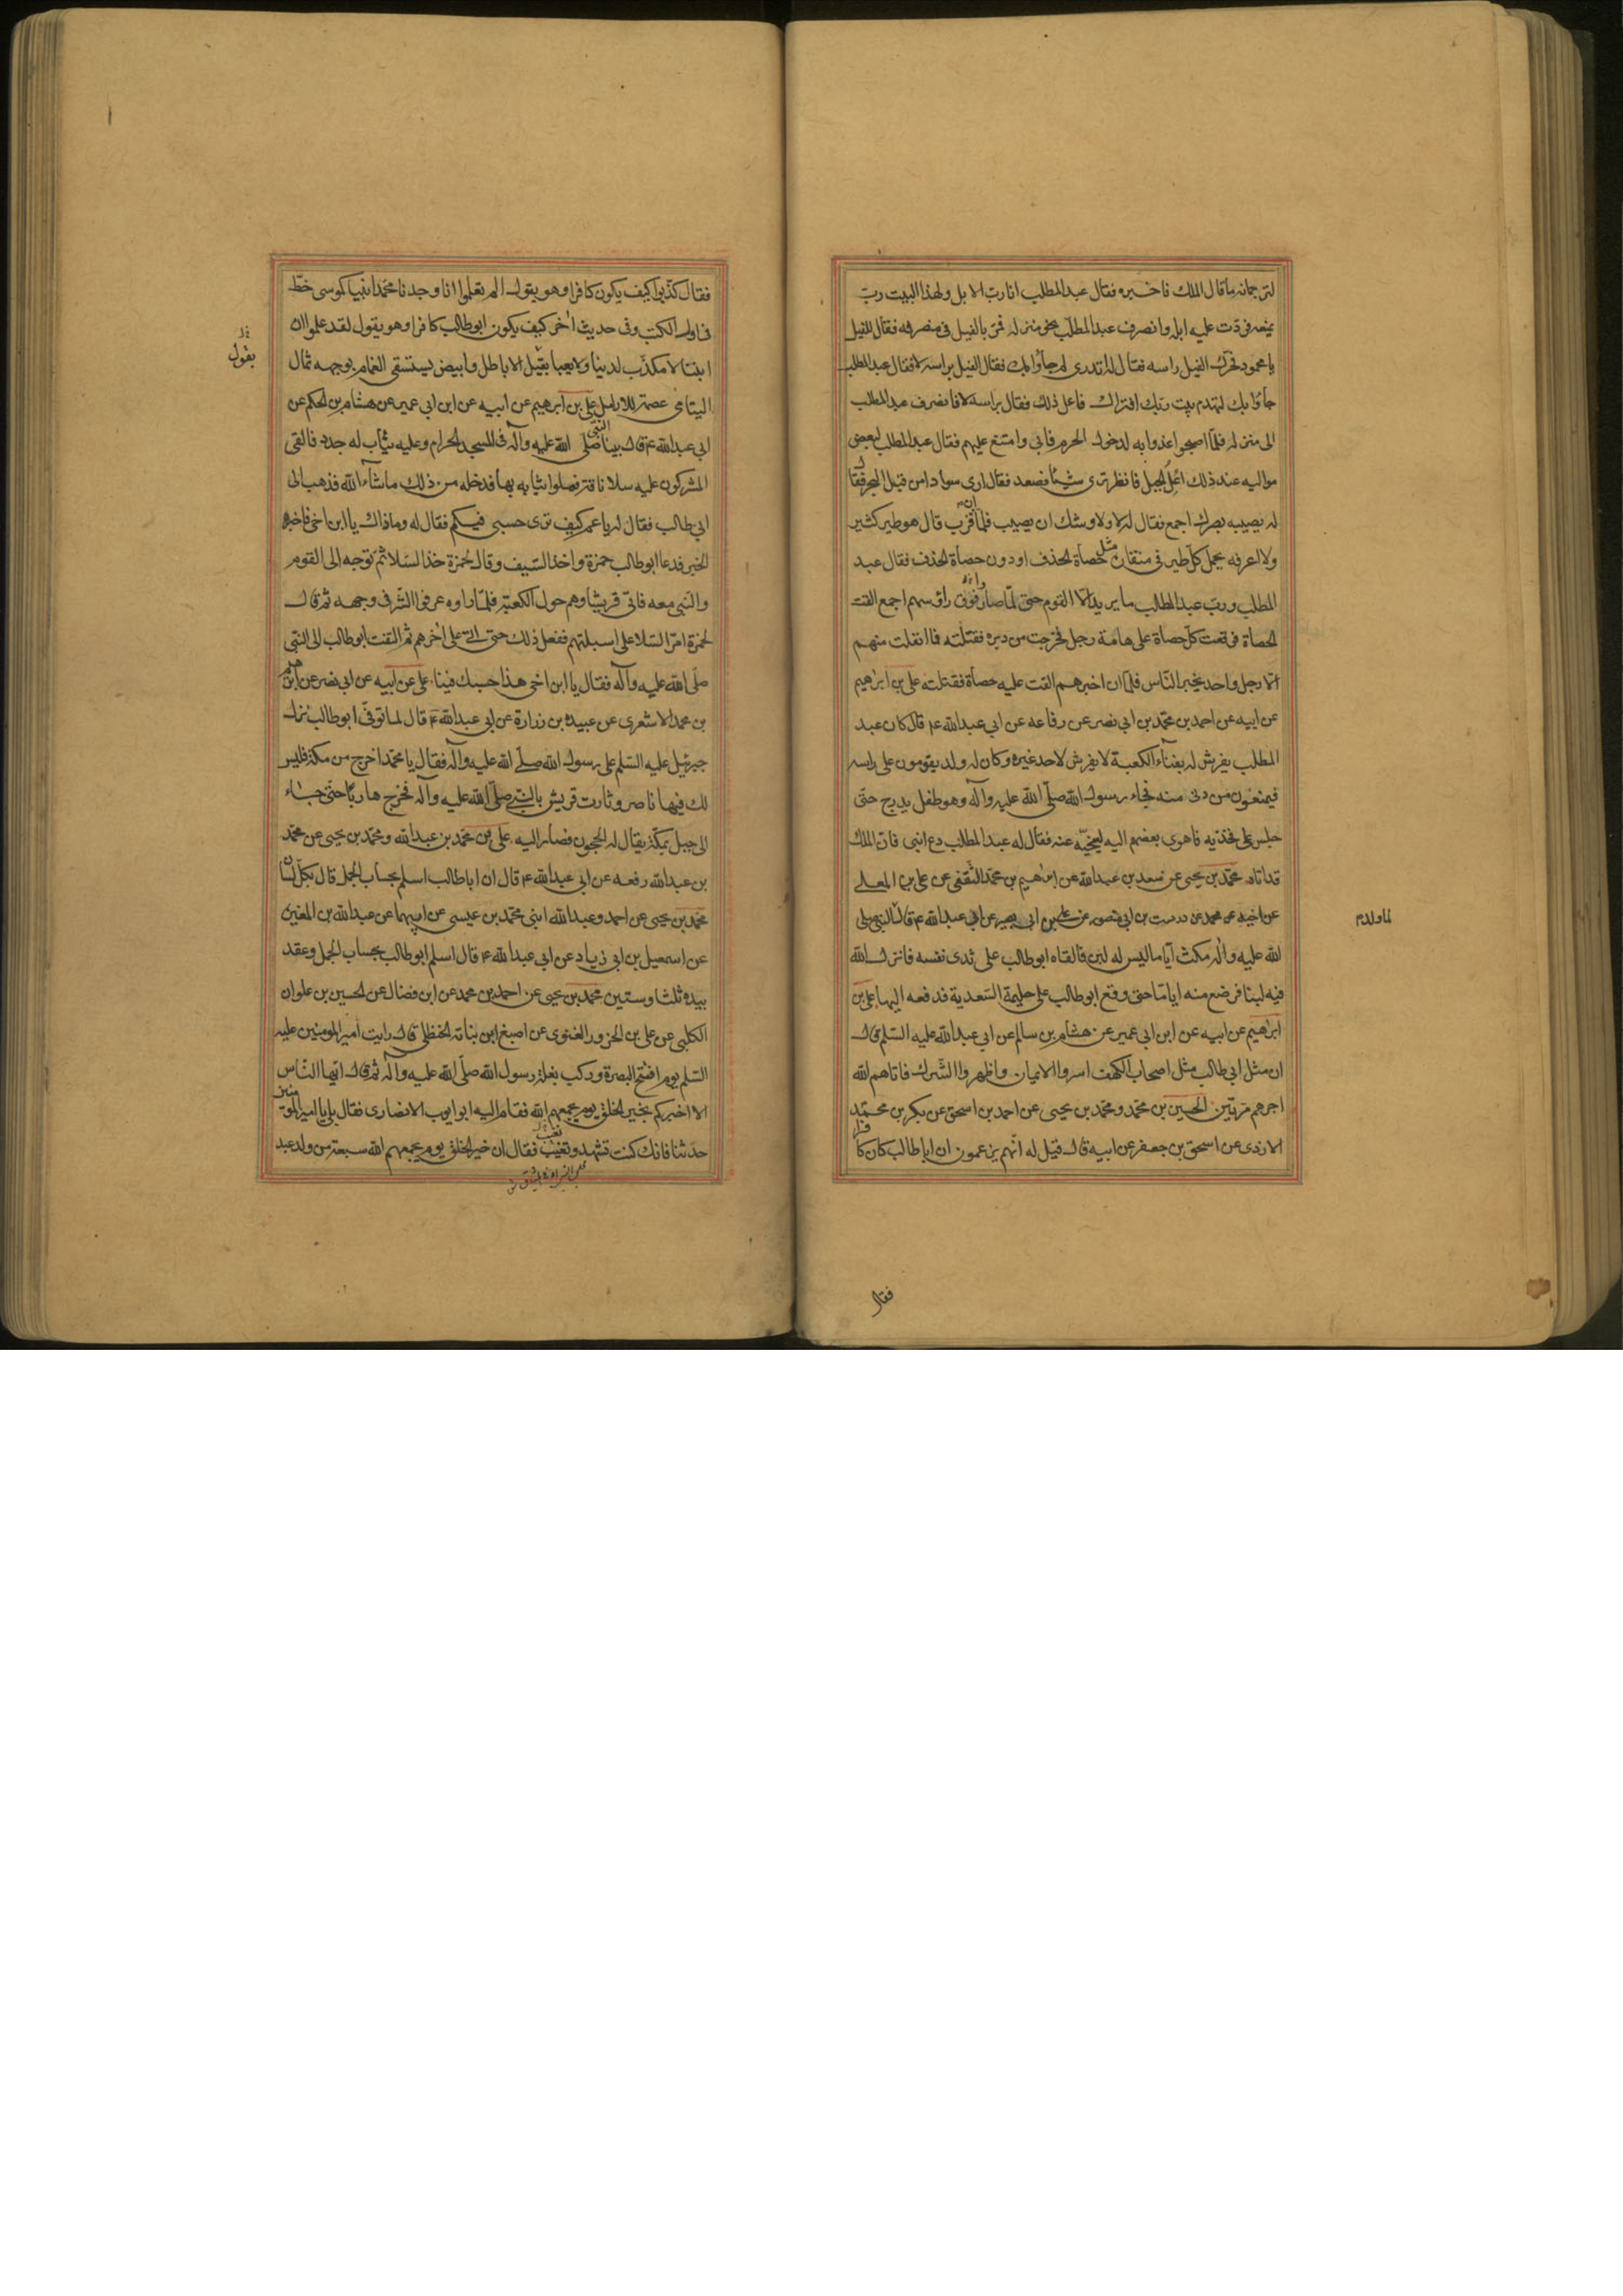 لترجمانه ما قال الملك فاخبره فقال عبد المطلب انا رب الابل ولهذا البيت ربّ
يمنعه فردّت عليه ابله وانصرف عبد المطلّب نحو منزله فمرّ بالفيل فى منصرفه فقال للفيل
يا محمود فحرّك الفيل راسه فقال له اتدرى لم جآؤا بك فقال الفيل براسه لا فقال عبد المطلب
جآؤا بك لتهدم بيت ربّك افتراك فاعل ذلك فقال براسه لا فانصرف عبد المطلب
الى منزله فلمّا اصبحوا غدوا به لدخول الحرم فابى وامتنع عليهم فقال عبد المطلب لبعض
مواليه عند ذلك اعل الجبل فانظر ترى شيئا فصعد فقال ارى سوادا من قبل البحر فقال
له يصيبه بصرك اجمع فقال له لا ولاوشك ان يصيب فلمّا ان قرب قال هو طير كثير
ولا اعرفه يحمل كلّ طير فى منقاره مثل حصاة الخذف او دون حصاة الخذف فقال عبد
المطلب وربّ عبد المطالب ما يريد الا القوم حتى لمّا صار فوق رؤسهم اجمع القت
الحصاة فوقعت كلّ حصاة على هامة رجل فخرجت من دبره فقتلته فما انفلت منهم
الّا رجل واحد يخبر النّاس فلمّا ان اخبرهم القت عليه حصاة فقتلته على بن ابرٰهيم
عن ابيه عن احمد بن محمّد بن ابى نصر عن رفاعه عن ابى عبد الله ع قال كان عبد
المطلب يفرش له بفناء الكعبة لا يفرش لاحد غيره وكان له ولد يقومون على راسه
فيمنعون من دنى منه فجاء رسول الله صلّى الله عليه وآله وهو طفل يدرج حتّى
جلس على فخذيه فاهوى بعضهم اليه لينحّيه عنه فقال له عبد المطلب دع ابنى فان الملك
قد اتاه محمّد بن يحيى عن سعد بن عبد الله عن ابرٰهيم بن محمّد الثّقفى عن على بن المعلى
عن اخيه عن محمد عن درست بن ابى منصور عن على بن ابى بصير عن ابى عبد الله ع قال النبى صلى
لما ولد م
الله عليه وآله مكث اياما ليس له لبن فالقاه ابو طالب على ثدى نفسه فانزل الله
فيه لبنا فرضع منه ايامّا حتى وقع ابو طالب على حليمة السّعدية فدفعه اليها على بن
ابرٰهيم عن ابيه عن ابن ابى عمير عن هشام بن سالم عن ابى عبد الله عليه السّلم قال
ان مثل ابى طالب مثل اصحاب الكهف اسروا الايمان واظهروا الشّرك فاتاهم الله
اجرهم مرتين الحسين بن محمّد ومحمّد بن يحيى عن احمد بن اسحق عن بكر بن محمّد
الازدى عن اسحق بن جعفر عن ابيه قال قيل له انّهم يزعمون ان ابا طالب كان كافرا
فقال
فقال كذبوا كيف يكون كافرا وهو يقول الم تعلموا انا وجدنا محمّدا نبيا كموسى خطّ
فى اول الكتب وفى حديث اٰخر كيف يكون ابو طالب كافرا وهو يقول لقد علموا ان
يقول
ابننا لا مكذّب لدينا ولا يعبأ بقيل الاباطل وابيض يستسقى الغمام بوجهه ثمال
اليتامى عصمة للارامل على بن ابرهيم عن ابيه عن ابن ابى عمير عن هشام بن الحكم عن
ابى عبد الله ع قال بينا النّبى صلّى الله عليه وآله فى المسجد الحرام وعليه ثياب له جدد فالقى
المشركون عليه سلا ناقة فملوا ثيابه بها فدخله من ذلك ما شآء الله فذهب الى
ابى طالب فقال له يا عم كيف ترى حسبى فيكم فقال له وما ذاك يا ابن اخى فاخبره
الخبر فدعا ابو طالب حمزة واخذ السّيف وقال لحمزة خذ السّلا ثمّ توجه الى القوم
والنّبى معه فاتى قريشا وهم حول الكعبة فلمّا راوه عرفوا الشّرّ فى وجهه ثم قال
لحمزة امرّ السّلا على اسبلتهم ففعل ذلك حتى اتى على اٰخرهم ثم التفت ابو طالب الى النّبى
صلّى الله عليه وآله فقال يا ابن اخى هذا حسبك فينا على عن ابيه عن ابى نصر عن ابرهيم
بن محمد الاشعرى عن عبيد بن زرارة عن ابى عبد الله ع قال لما توفّى ابو طالب نزل
جبرئيل عليه السّلم على رسول الله صلّى الله عليه وآله فقال يا محمّد اخرج من مكة فليس
لك فيها ناصر وثارت قريش بالنّبى صلّى الله عليه وآله فخرج هاربا حتى جاء
الى جبل بمكّة يقال له الحجون فصار اليه على بن محمّد بن عبد الله ومحمّد بن يحيى عن محمّد
بن عبد الله رفعه عن ابى عبد الله ع قال ان ابا طالب اسلم بحساب الجمل قال بكلّ لسان
محمّد بن يحيى عن احمد وعبد الله ابنى محمّد بن عيسى عن ابيهما عن عبد الله بن المغيرة
عن اسمعيل بن ابى زياد عن ابى عبد الله ع قال اسلم ابو طالب بحساب الجمل وعقد
بيده ثلثا وستين محمّد بن يحيى عن احمد بن محمد عن ابن فضال عن الحسين بن علوان
الكلبى عن على بن الحزور الغنوى عن اصبغ ابن نباته الحنظلى قال رايت امير المومنين عليه
السّلم يوم افتتح البصرة وركب بغلة رسول الله صلّى الله عليه وآله ثم قال ايّها النّاس
الا اخبركم بخير الخلق يوم يجمعهم الله فقام اليه ابو ايوب الانصارى فقال بلى يا امير المؤمنين
حدّثنا فانك كنت تشهد وتغيب فقال ان خير الخلق يوم يجمعهم الله سبعة من ولد عبد